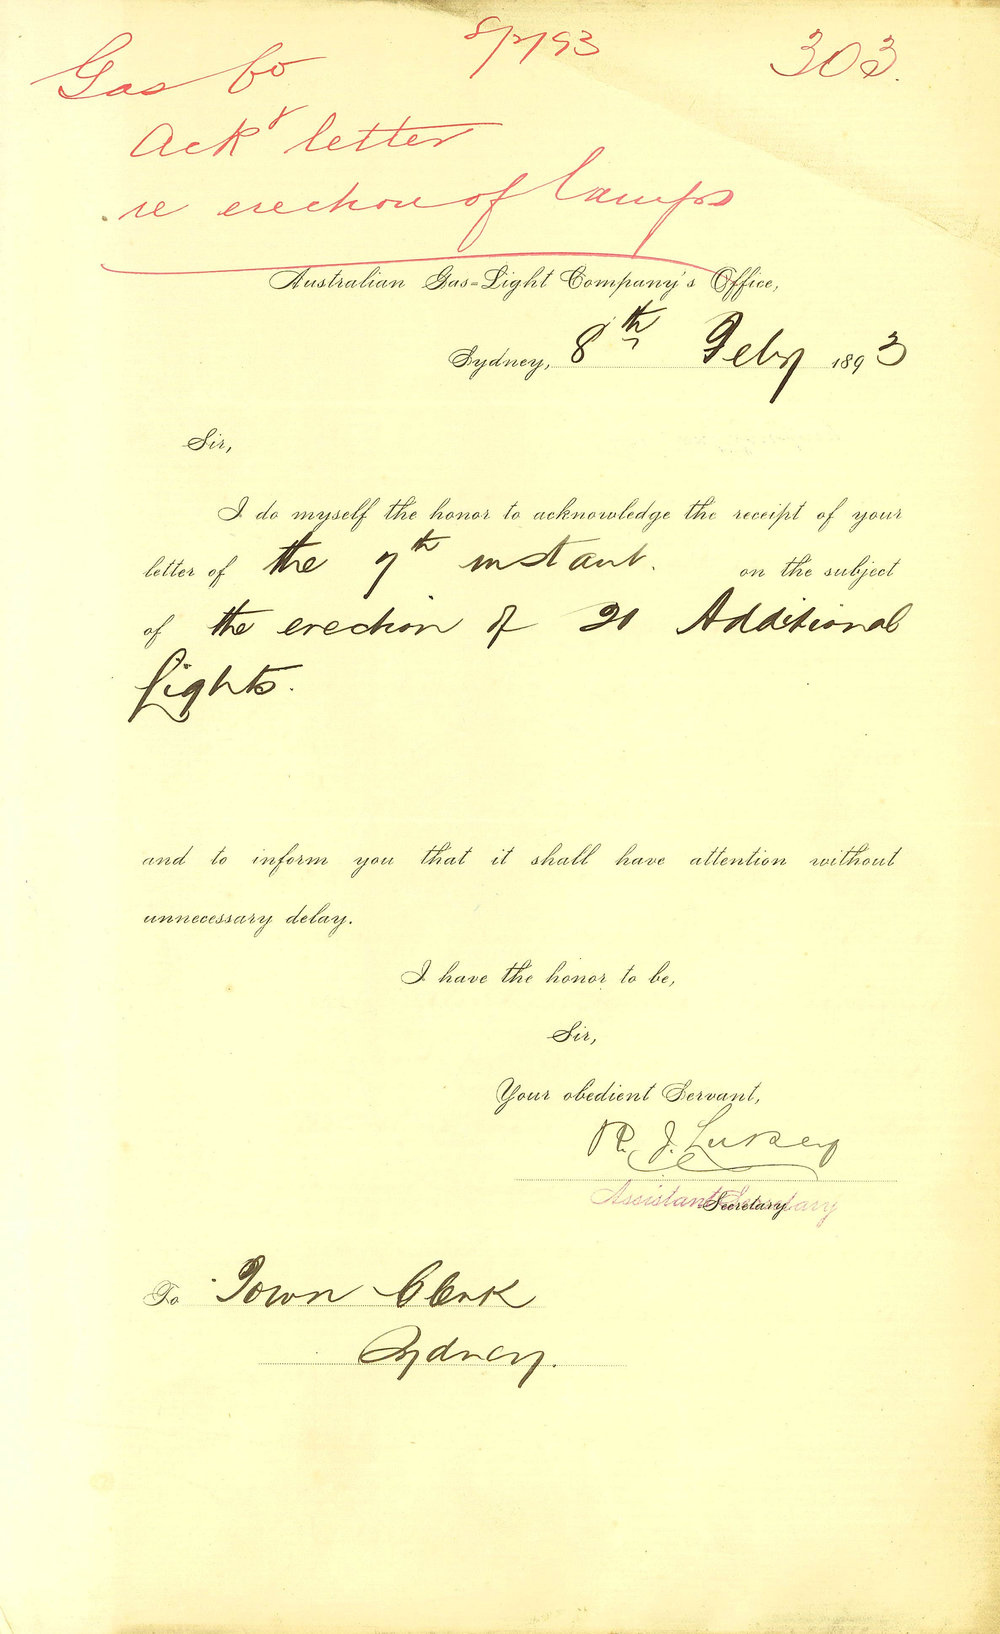 8/2/93 303.
Gas Co
Ackg letter
re erection of lamps
Australian Gas-Light Company's Office,
Sydney, 8th Feby 1893
Sir,
I do myself the honor to acknowledge the receipt of your
letter of the 7th instant. on the subject
of the erection of 21 Additional
Lights.
and to inform you that it shall have attention without
unnecessary delay.
I have the honor to be,
Sir,
Your obedient Servant,
R. J. Lukey
Assistant Secretary
Secretary
To Town Clerk
Sydney.